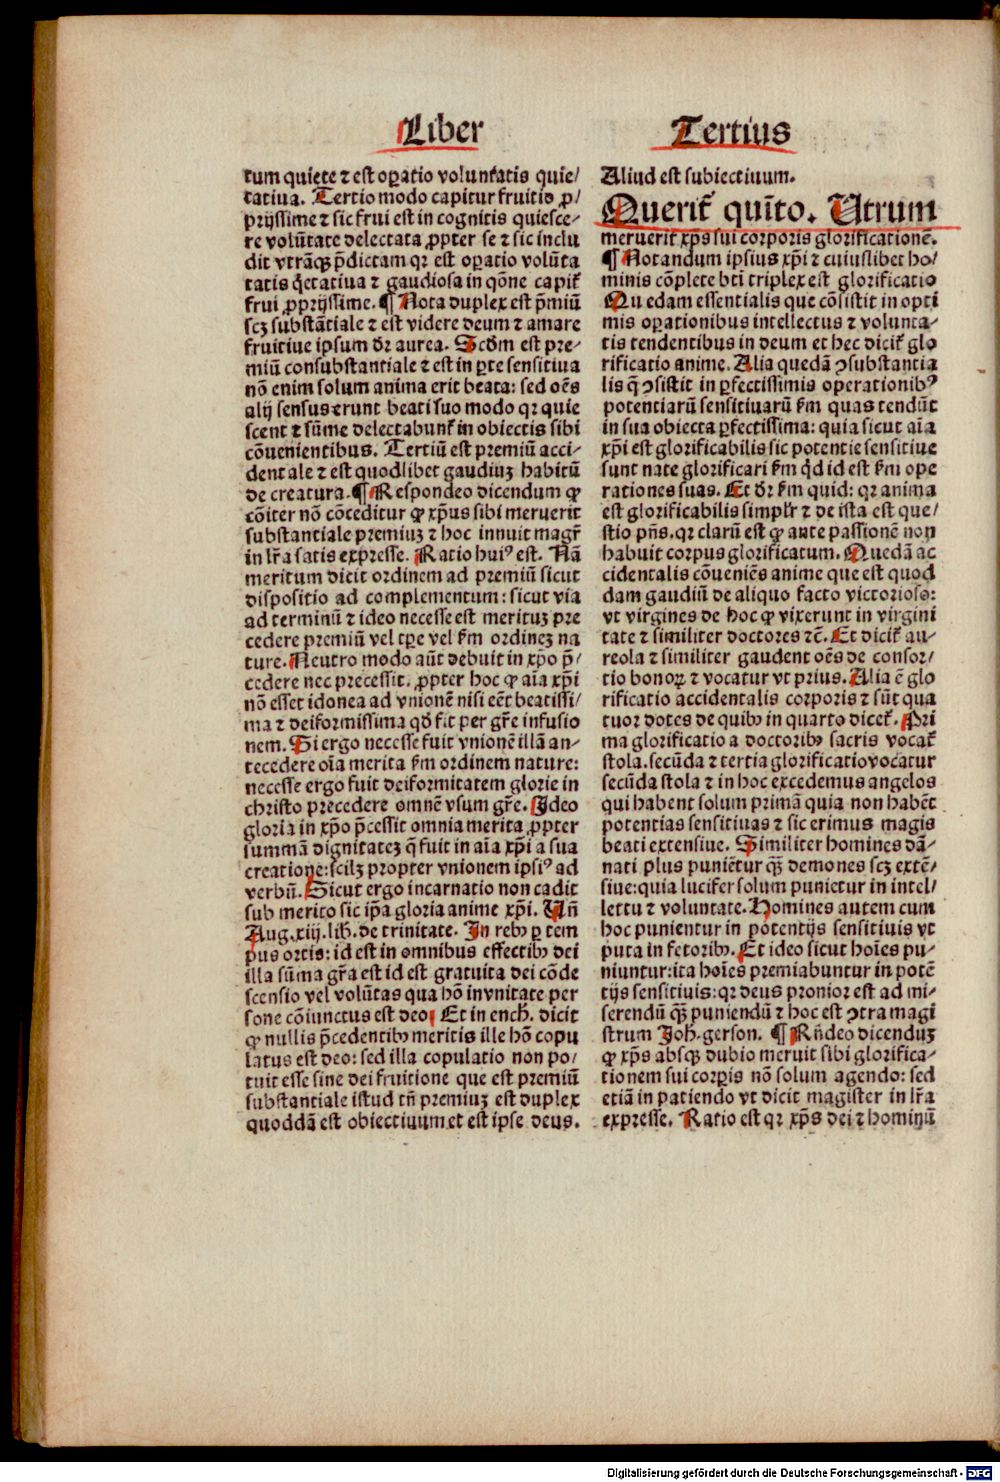 Liber
Tertius
tum quiete ⁊ est oꝑatio voluntatis quie/
tatiua. Tertio modo capitur fruitio ꝓ/
prijssime ⁊ sic frui est in cognitis quiesce-
re volūtate delectata ꝓpter se ⁊ sic inclu
dit vtrāqꝫ p̄dictam qꝛ est oꝑatio volūta
tatis q̄etatiua ⁊ gaudiosa in qōne capit̄
frui ꝓprijssime. ¶ Nota duplex est p̄miū
scꝫ substātiale ⁊ est videre deum ⁊ amare
fruitiue ipsum d̄r aurea. Scd̄m est pre-
miū consubstantiale ⁊ est in ꝑte sensitiua
nō enim solum anima erit beata: sed oēs
alij sensus erunt beati suo modo qꝛ quie
scent ⁊ sūme delectabunt̄ in obiectis sibi
cōuenientibus. Tertiū est premiū acci-
dentale ⁊ est quodlibet gaudiuꝫ habitū
de creatura. ¶ Respondeo dicendum ꝙ
cōiter nō cōceditur ꝙ xp̄us sibi meruerit
substantiale premiuꝫ ⁊ hoc innuit magr̄
in lr̄a satis expresse. Ratio huiꝰ est. Nā
meritum dicit ordinem ad premiū sicut
dispositio ad complementum: sicut via
ad terminū ⁊ ideo necesse est merituꝫ pre
cedere premiū vel tꝑe vel ẜm ordineꝫ na
ture. Neutro modo aūt debuit in xp̄o p̄/
cedere nec precessit. ꝓpter hoc ꝙ aīa xp̄i
nō esset idonea ad vnionē nisi eēt beatissi/
ma ⁊ deiformissima qd̄ fit per gr̄e infusio
nem. Si ergo necesse fuit vnionē illā an-
tecedere oīa merita ẜm ordinem nature:
necesse ergo fuit deiformitatem glorie in
christo precedere omnē vsum gr̄e. Ideo
gloria in xp̄o p̄cessit omnia merita ꝓpter
summam dignitateꝫ q̄ fuit in aīa xp̄i a sua
creatione: scilꝫ propter vnionem ipsiꝰ ad
verbū. Sicut ergo incarnatio non cadit
sub merito sic ip̄a gloria anime xp̄i. Vn̄
Aug. xiij. lib̄. de trinitate. In rebꝫ ꝑ tem
pus ortis: id est in omnibus effectibꝫ dei
illa sūma gr̄a est id est gratuita dei cōde
scensio vel volūtas qua hō in vnitate per
sone cōiunctus est deo. Et in ench. dicit
ꝙ nullis p̄cedentibꝫ meritis ille hō copu
latus est deo: sed illa copulatio non po/
tuit esse sine dei fruitione que est premiū
substantiale istud tn̄ premiuꝫ est duplex
quoddā est obiectiuum et est ipse deus.
Aliud est subiectiuum.
Querit̄ quīto. Vtrum
meruerit xp̄s sui corporis glorificationē.
¶ Notandum ipsius xp̄i ⁊ cuiuslibet ho/
minis cōplete bt̄i triplex est glorificatio
Quedam essentialis que cōsistit in opti
mis oꝑationibus intellectus ⁊ volunta-
tis tendentibus in deum et hec dicit̄ glo
rificatio anime. Alia quedā ꝯsubstantia
lis q̄ ꝯsistit in ꝑfectissimis operationibꝰ
potentiarū sensitiuarū ẜm quas tendūt
in sua obiecta ꝑfectissima: quia sicut aīa
xp̄i est glorificabilis sic potentie sensitiue
sunt nate glorificari ẜm qd̄ id est ẜm ope
rationes suas. Et d̄r ẜm quid: qꝛ anima
est glorificabilis simpl̄r ⁊ de ista est que/
stio pn̄s. qꝛ clarū est ꝙ ante passionē non
habuit corpus glorificatum. Quedā ac
cidentalis cōueniēs anime que est quod
dam gaudiū de aliquo facto victorioso:
vt virgines de hoc ꝙ vixerunt in virgini
tate ⁊ similiter doctores ⁊c̄. Et dicit̄ au-
reola ⁊ similiter gaudent oēs de consor/
tio bonoꝝ ⁊ vocatur vt prius. Alia ē glo
rificatio accidentalis corporis ⁊ sūt qua
tuor dotes de quibꝫ in quarto dicet̄. Pri
ma glorificatio a doctoribꝫ sacris vocat̄
stola. secūda ⁊ tertia glorificatio vocatur
secūda stola ⁊ in hoc excedemus angelos
qui habent solum primā quia non habēt
potentias sensitiuas ⁊ sic erimus magis
beati extensiue. Similiter homines dā-
nati plus puniētur qꝫ̄ demones scꝫ extē-
siue: quia lucifer solum punietur in intel/
lectu ⁊ voluntate. Homines autem cum
hoc punientur in potentijs sensitiuis vt
puta in fetoribꝫ. Et ideo sicut hoīes pu-
niuntur: ita hoīes premiabuntur in potē
tijs sensitiuis: qꝛ deus pronior est ad mi-
serendū qꝫ̄ puniendū ⁊ hoc est ꝯtra magi
strum Joh. gerson. ¶ Rn̄deo dicenduꝫ
ꝙ xp̄s absqꝫ dubio meruit sibi glorifica-
tionem sui corꝑis nō solum agendo: sed
etiā in patiendo vt dicit magister in lr̄a
expresse. Ratio est qꝛ xp̄s dei ⁊ hominū
Digitalisierung gefördert durch die Deutsche Forschungsgemeinschaft - DFG